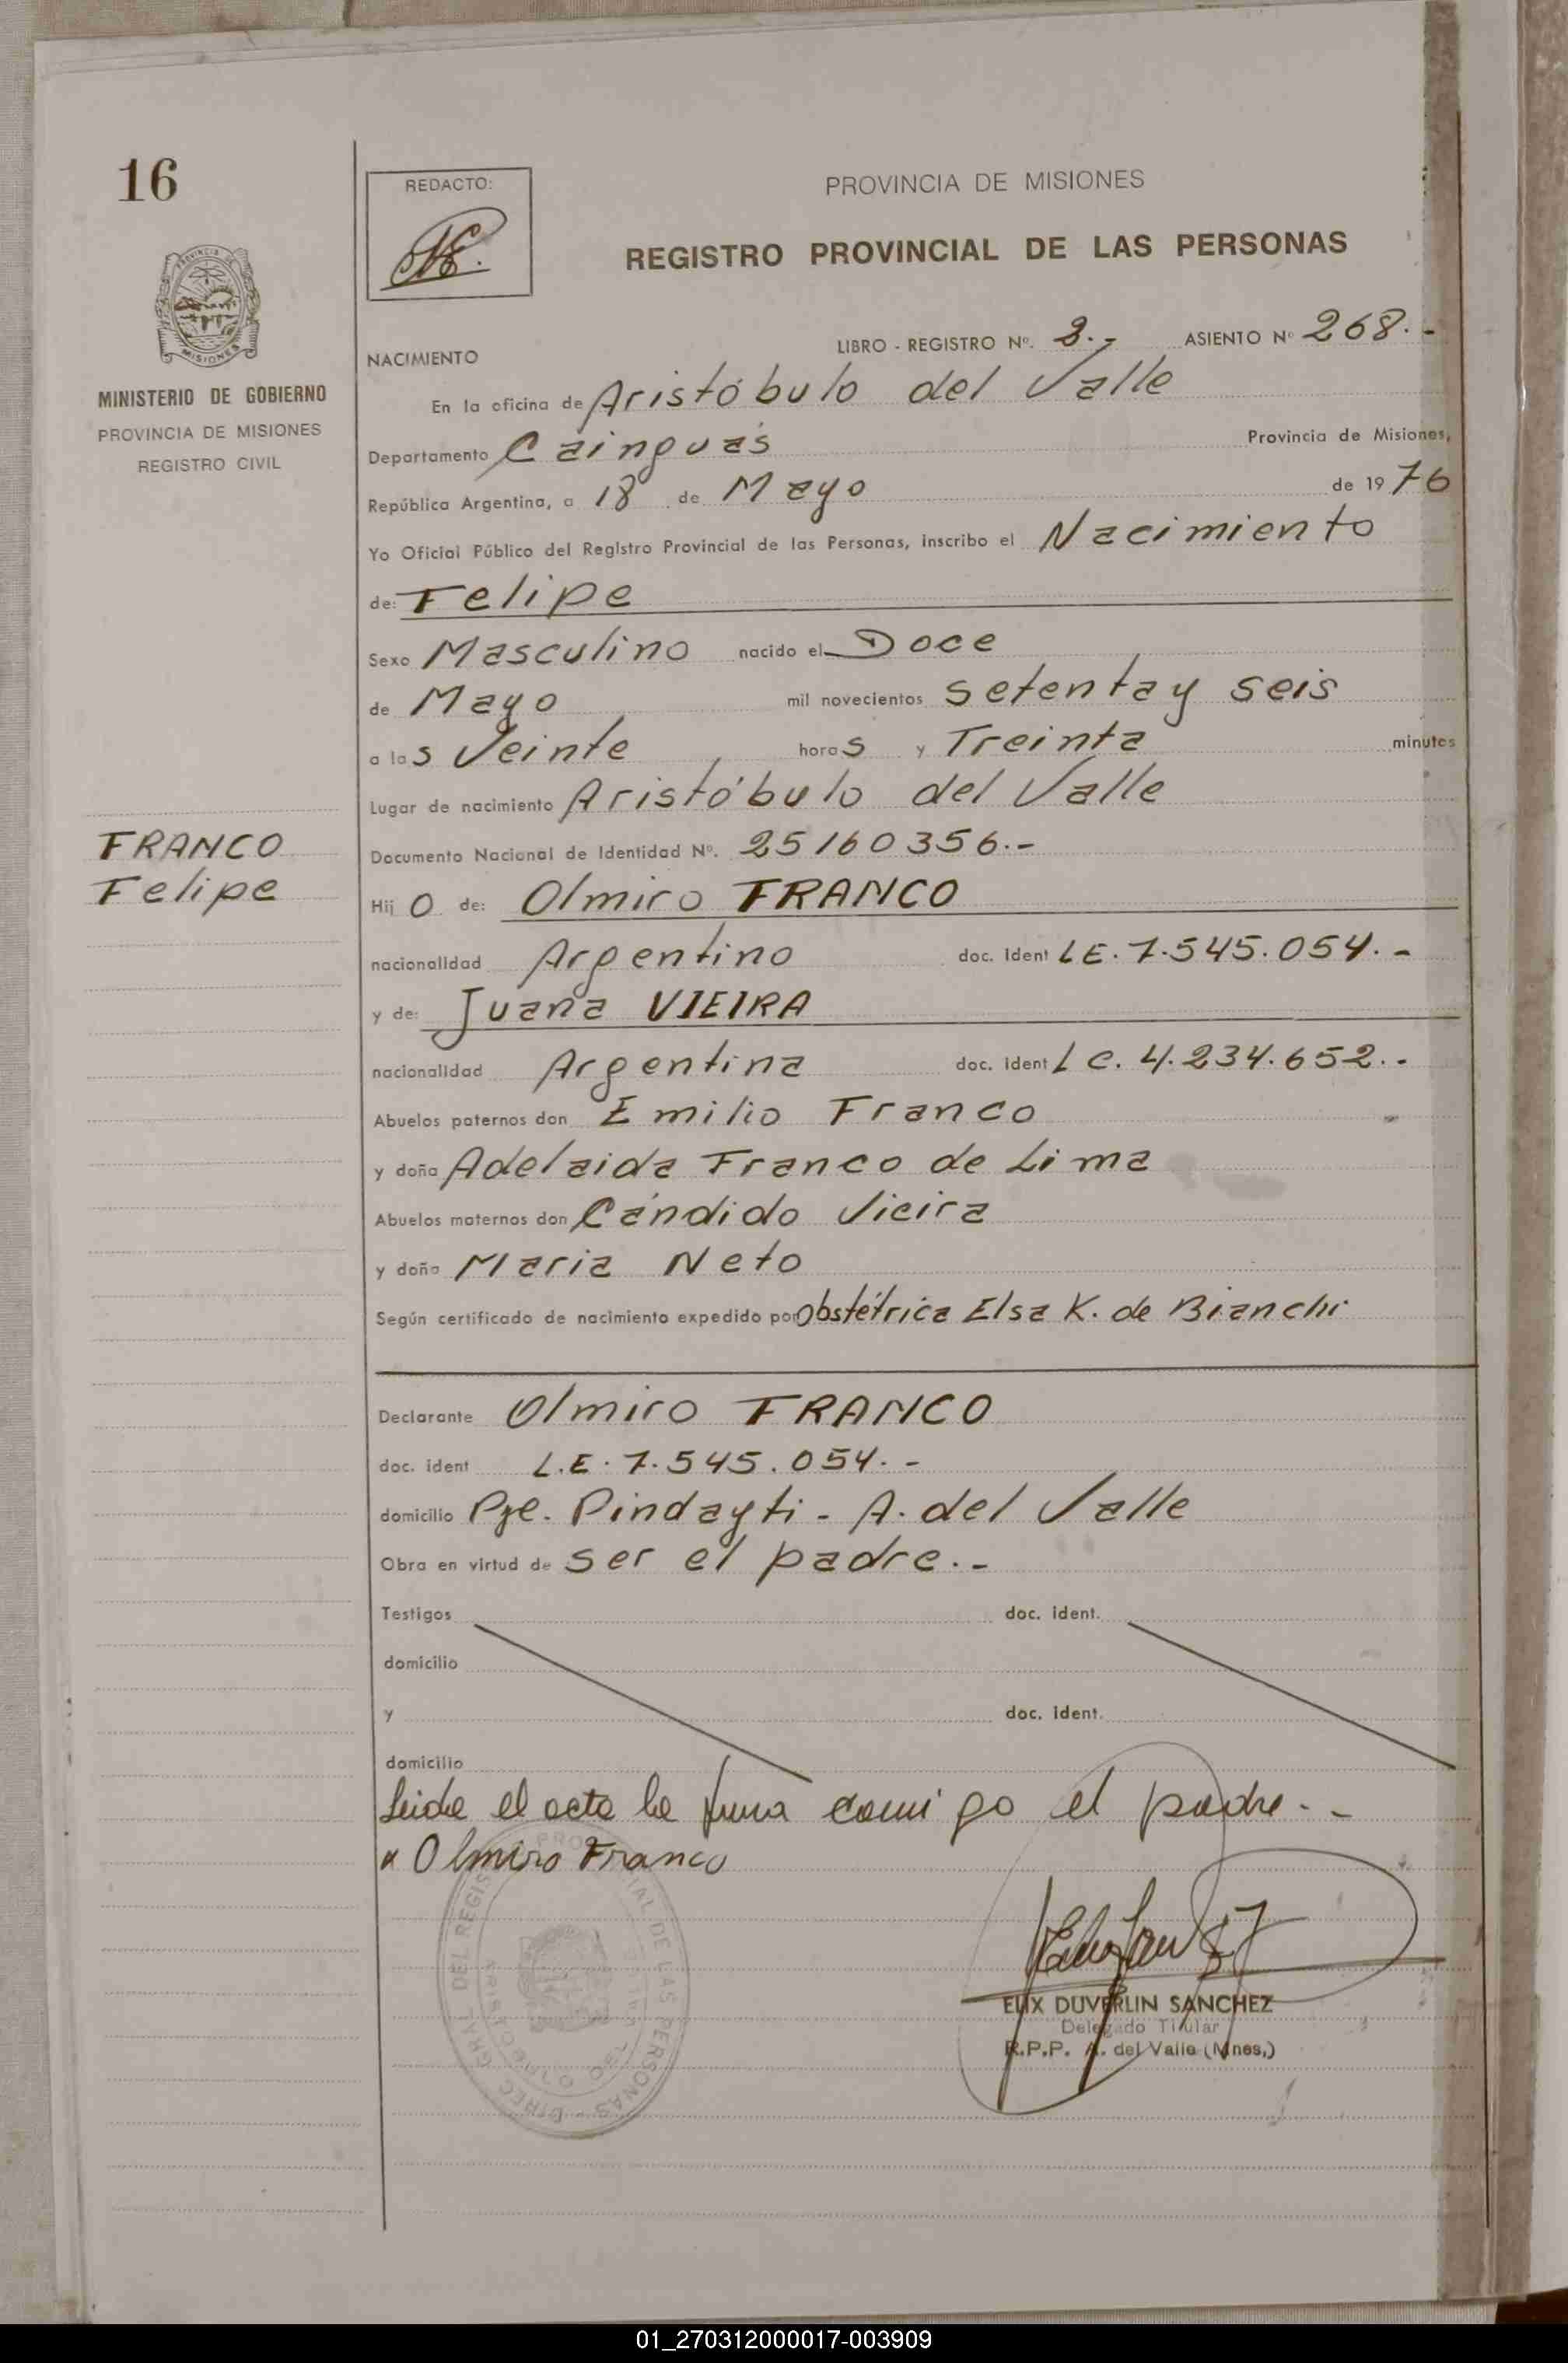 16
REDACTO:
PROVINCIA DE MISIONES
REGISTRO PROVINCIAL DE LAS PERSONAS
MISIONES
MINISTERIO DE GOBIERNO
PROVINCIA DE MISIONES
REGISTRO CIVIL
LIBRO - REGISTRO Nº. 2.- ASIENTO Nº 268.-
NACIMIENTO
En la oficina de Aristóbulo del Valle
Departamento Cainguás Provincia de Misiones,
República Argentina, a 18 de Mayo de 1976
Yo Oficial Público del Registro Provincial de las Personas, inscribo el Nacimiento
de: Felipe
Sexo Masculino nacido el Doce
de Mayo mil novecientos setenta y seis
a las Veinte horas y Treinta minutos
Lugar de nacimiento Aristóbulo del Valle
FRANCO
Felipe
Documento Nacional de Identidad Nº. 25160356.-
Hijo de: Olmiro FRANCO
nacionalidad Argentino doc. ident LE. 7.545.054.-
y de: Juana VIEIRA
nacionalidad Argentina doc. ident LC. 4.234.652.-
Abuelos paternos don Emilio Franco
y doña Adelaida Franco de Lima
Abuelos maternos don Cándido Vieira
y doña Maria Neto
Según certificado de nacimiento expedido por Obstétrica Elsa K. de Bianchi
Declarante Olmiro FRANCO
doc. ident L.E. 7.545.054.-
domicilio Pje. Pindayti - A. del Valle
Obra en virtud de ser el padre.-
Testigos doc. ident.
domicilio
y doc. ident.
domicilio
Leida el acta la firma conmigo el padre.-
Olmiro Franco
ELIX DUVERLIN SANCHEZ
Delegado Titular
R.P.P. A. del Valle (Mnes,)
01_270312000017-003909